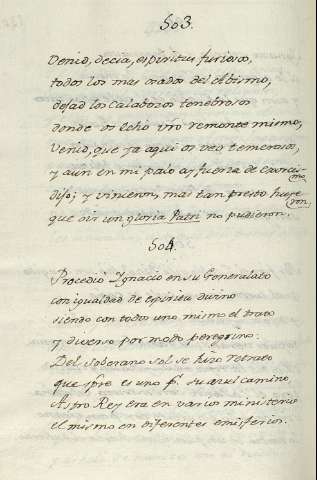 503.
Venid, decia, espiritus furiosos,
todos los mas osados del Abismo,
dejad los Calabozos tenebrosos
donde os hecho vro remonte mismo,
Venid, que ya aqui os veo temerosos,
y aun en mi palo ay fuerza de exorcis-
mo.
dijo; y vinieron, mas tan presto huye-
ron,
que oir un gloria Patri no pudieron.
504.
Procedió Ignacio en su Generalato
con igualdad de espiritu divino
siendo con todos uno mismo el trato
y diverso por modo peregrino.
Del soberano sol se hizo retrato
que spre es uno pr. su azul camino,
Astro Rey era en varios ministerio
el mismo en diferentes emisferios.